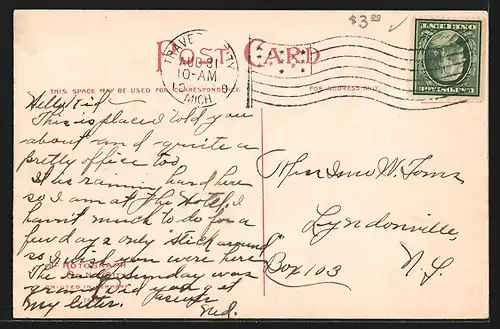 $3.00
TRAVERSE CITY
AUG 31
10-AM
MICH
POST CARD
ONE CENT
U.S. POSTAGE
THIS SPACE MAY BE USED FOR CORRESPONDENCE
FOR ADDRESS ONLY.
Hello Kid-
This is place I told you
about and quite a
pretty office too
It is raining hard here
so I am at the Hotel. I
havn't much to do for a
few days only "stick around"
so wish you were here
The Sunday was
did you get
my letter.
Ned.
W. Toms
Lyndonville,
Box 103
N.Y.
PHOTOGRAPH
PRINTED IN